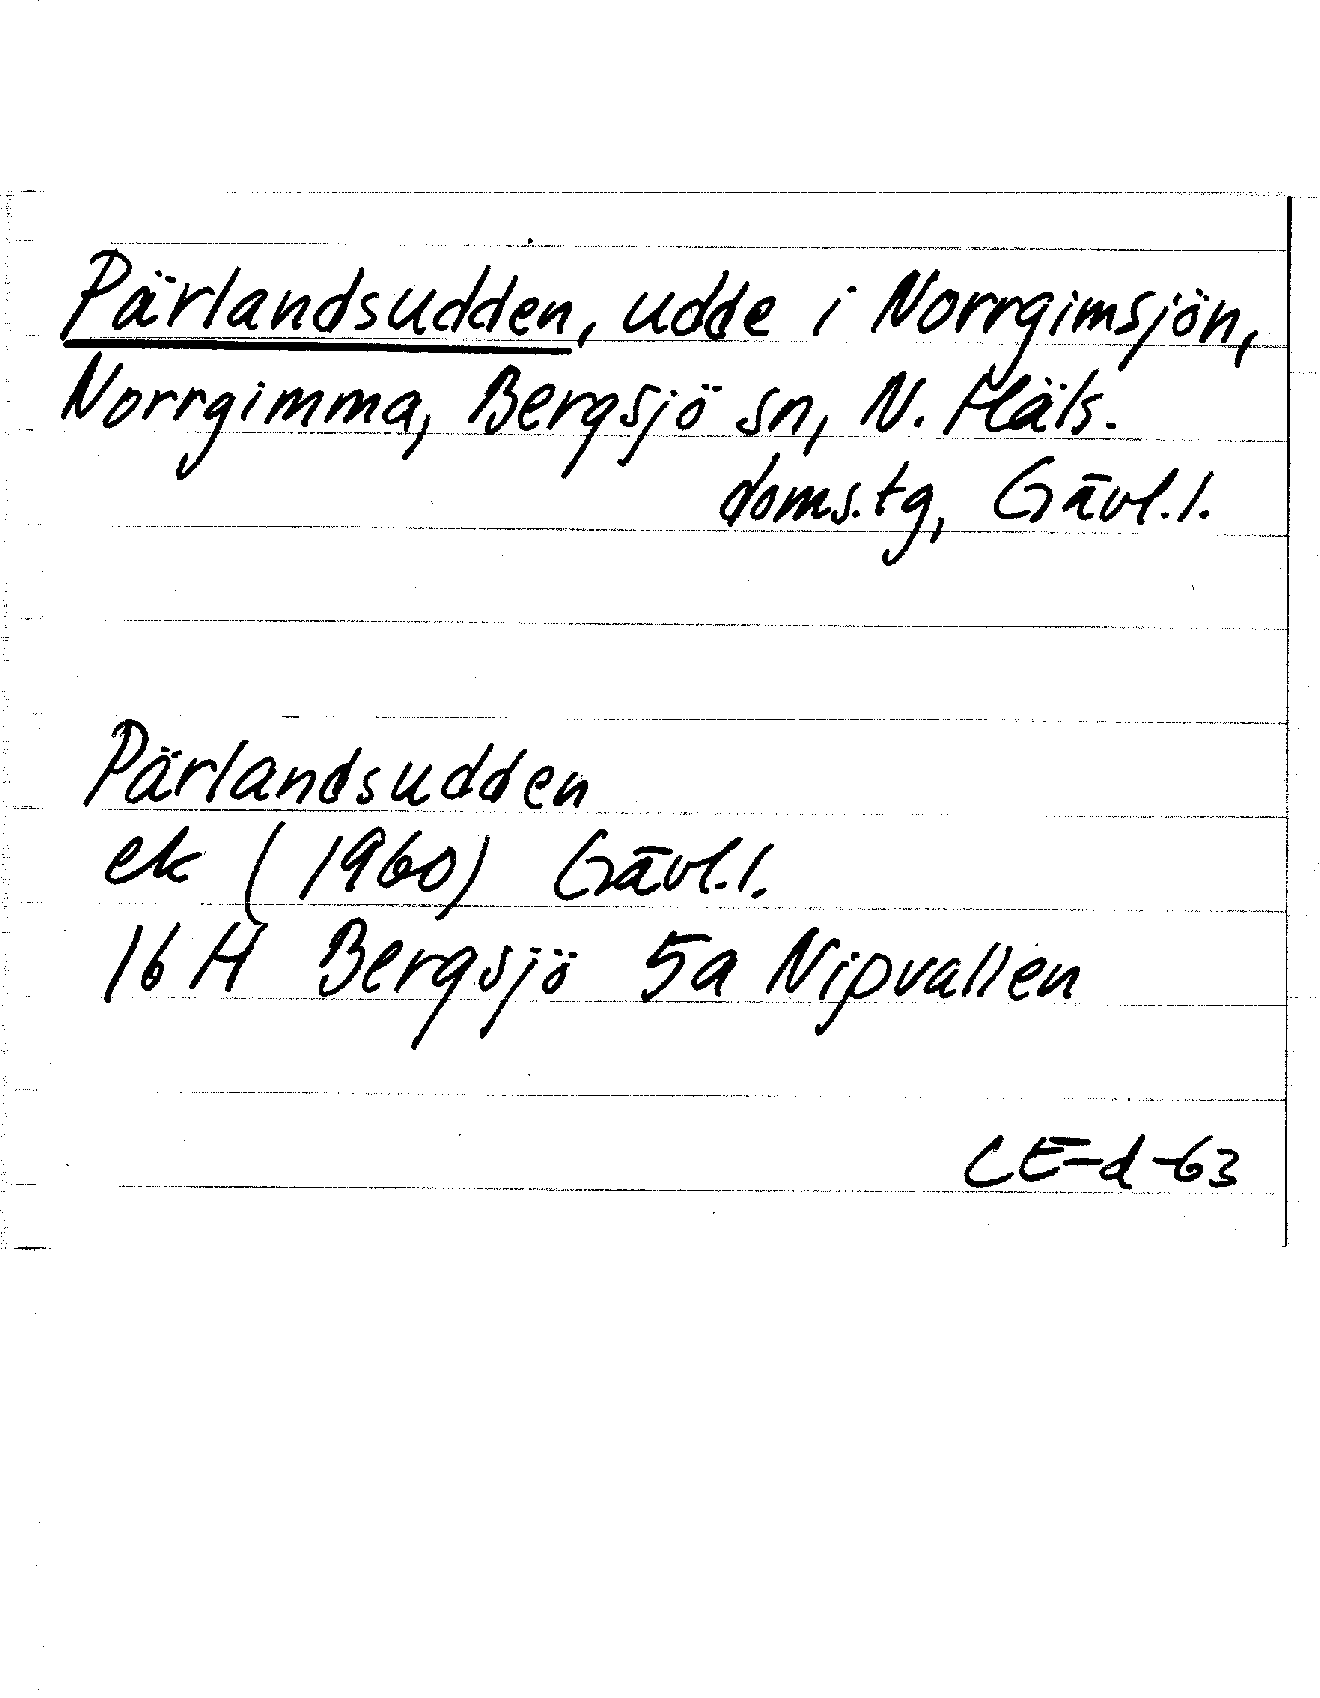 Pärlandsudden, udde i Norrgimsjön,
Norrgimma, Bergsjö sn, N. Häls.
doms.tg, Gävl.l.
Pärlandsudden
ek (1960) Gävl.l.
16 H Bergsjö 5a Nipvallen
CE-d-63